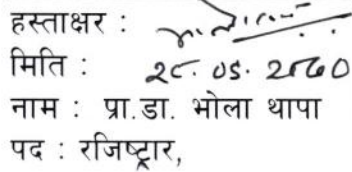 हस्ताक्षर :
मिति : २८. ०८. २०८०
नाम : प्रा.डा. भोला थापा
पद : रजिष्ट्रार,